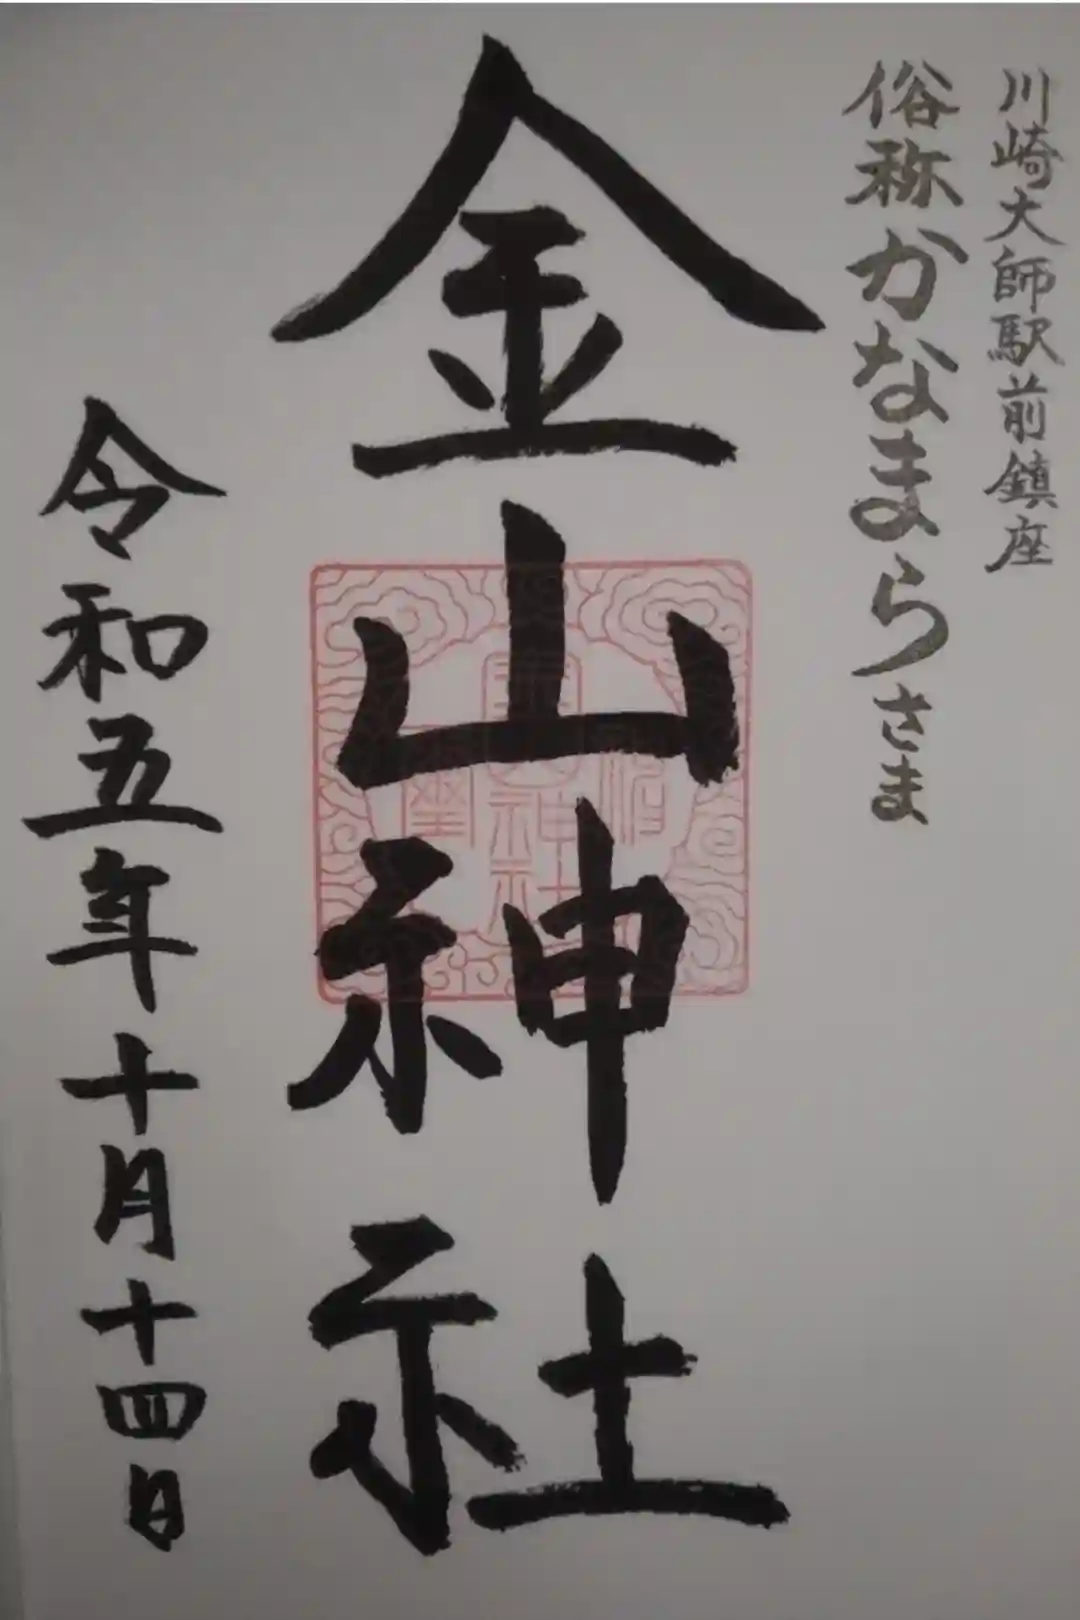 川崎大師駅前鎮座
俗称かなまらさま
金山神社
令和五年十月十四日